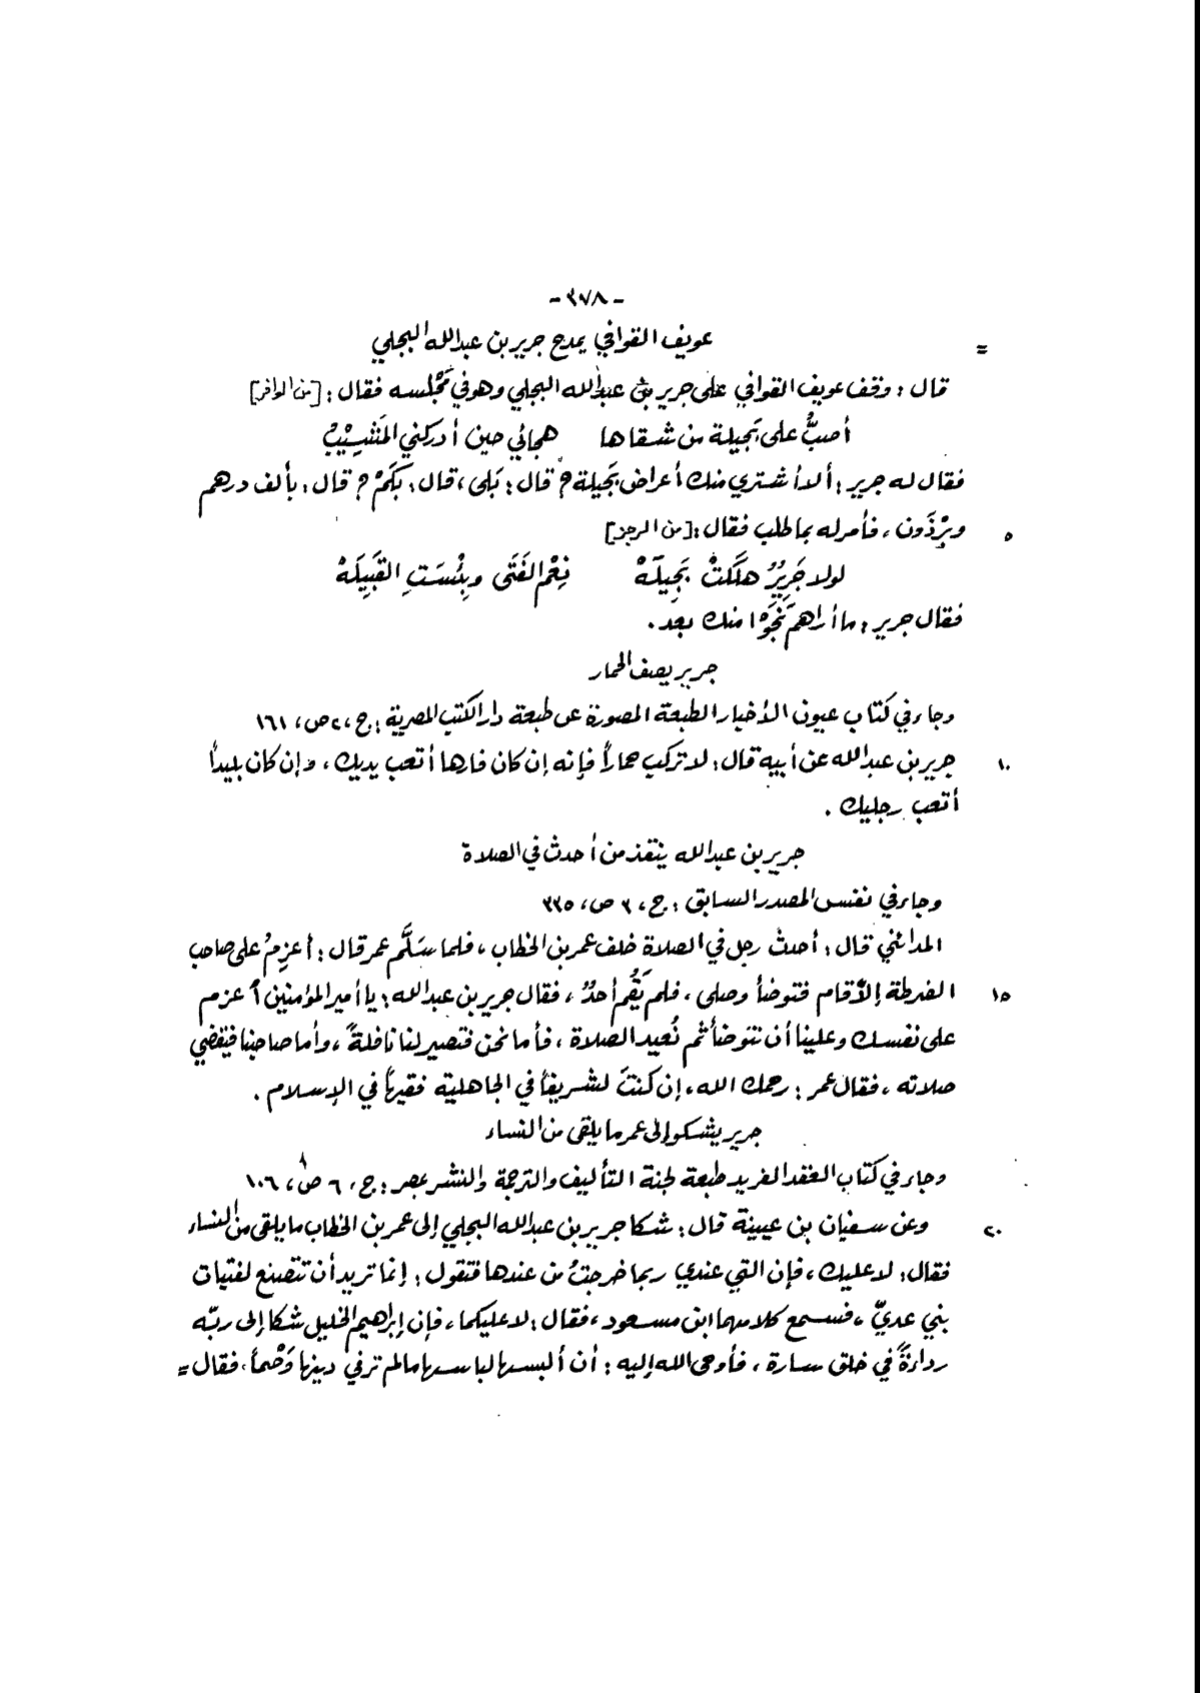 -٣٧٨-
= عويف القوافي يمدح جرير بن عبدالله البجلي
قال : وقف عويف القوافي على جرير بن عبدالله البجلي وهو في مَجْلسه فقال : [من الوافر]
أصبُّ على بَجيلة من شقاها هجائي حين أدركني المَشِيْبُ
فقال له جرير : ألا أشتري منك أعراض بَجيلة ؟ قال : بَلى ، قال : بكَمْ ؟ قال : بألف درهم
٥ وبِرْذَون ، فأمر له بما طلب فقال : [من الرجز]
لولا جَرِيرُ هلَكتْ بَجِيلَهْ نِعْمَ الفَتَى وبِئْسَتِ القَبِيلَهْ
فقال جرير : ما أراهم نَجَوْا منك بعد .
جرير يصف الحمار
وجاء في كتاب عيون الأخبار الطبعة المصورة عن طبعة دار الكتب المصرية : ج ، ٢ ص ، ١٦١
١٠ جرير بن عبدالله عن أبيه قال : لا تركب حماراً فإنه إن كان فارها أتعب يديك ، وإن كان بليداً
أتعب رجليك .
جرير بن عبدالله ينقذ من أحدث في الصلاة
وجاء في نفس المصدر السابق : ج ، ٣ ص ، ٣٣٥
المدائني قال : أحدث رجل في الصلاة خلف عمر بن الخطاب ، فلما سَلَّم عمر قال : أعزِمُ على صاحب
١٥ الضرطة إلّا قام فتوضأ وصلى ، فلم يَقُم أحدٌ ، فقال جرير بن عبدالله : يا أمير المؤمنين أعزم
على نفسك وعلينا أن نتوضأ ثم نُعيد الصلاة ، فأما نحن فتصير لنا نافلةً ، وأما صاحبنا فيقضي
صلاته ، فقال عمر : رحمك الله ، إن كنتَ لشريفاً في الجاهلية فقيهاً في الإسلام .
جرير يشكو إلى عمر ما يلقى من النساء
وجاء في كتاب العقد الفريد طبعة لجنة التأليف والترجمة والنشر بمصر : ج ، ٦ ص ، ١٠٦
٢٠ وعن سفيان بن عيينة قال : شكا جرير بن عبدالله البجلي إلى عمر بن الخطاب ما يلقى من النساء
فقال : لا عليك ، فإن التي عندي ربما خرجتُ من عندها فتقول : إنما تريد أن تتصنع لفتيات
بني عديّ ، فسمع كلامهما ابن مسعود ، فقال : لا عليكما ، فإن إبراهيم الخليل شكا إلى ربّه
رداءةً في خلق سارة ، فأوحى الله إليه : أن ألبسها لباسها مالم تر في دينها وَصْماً ، فقال =